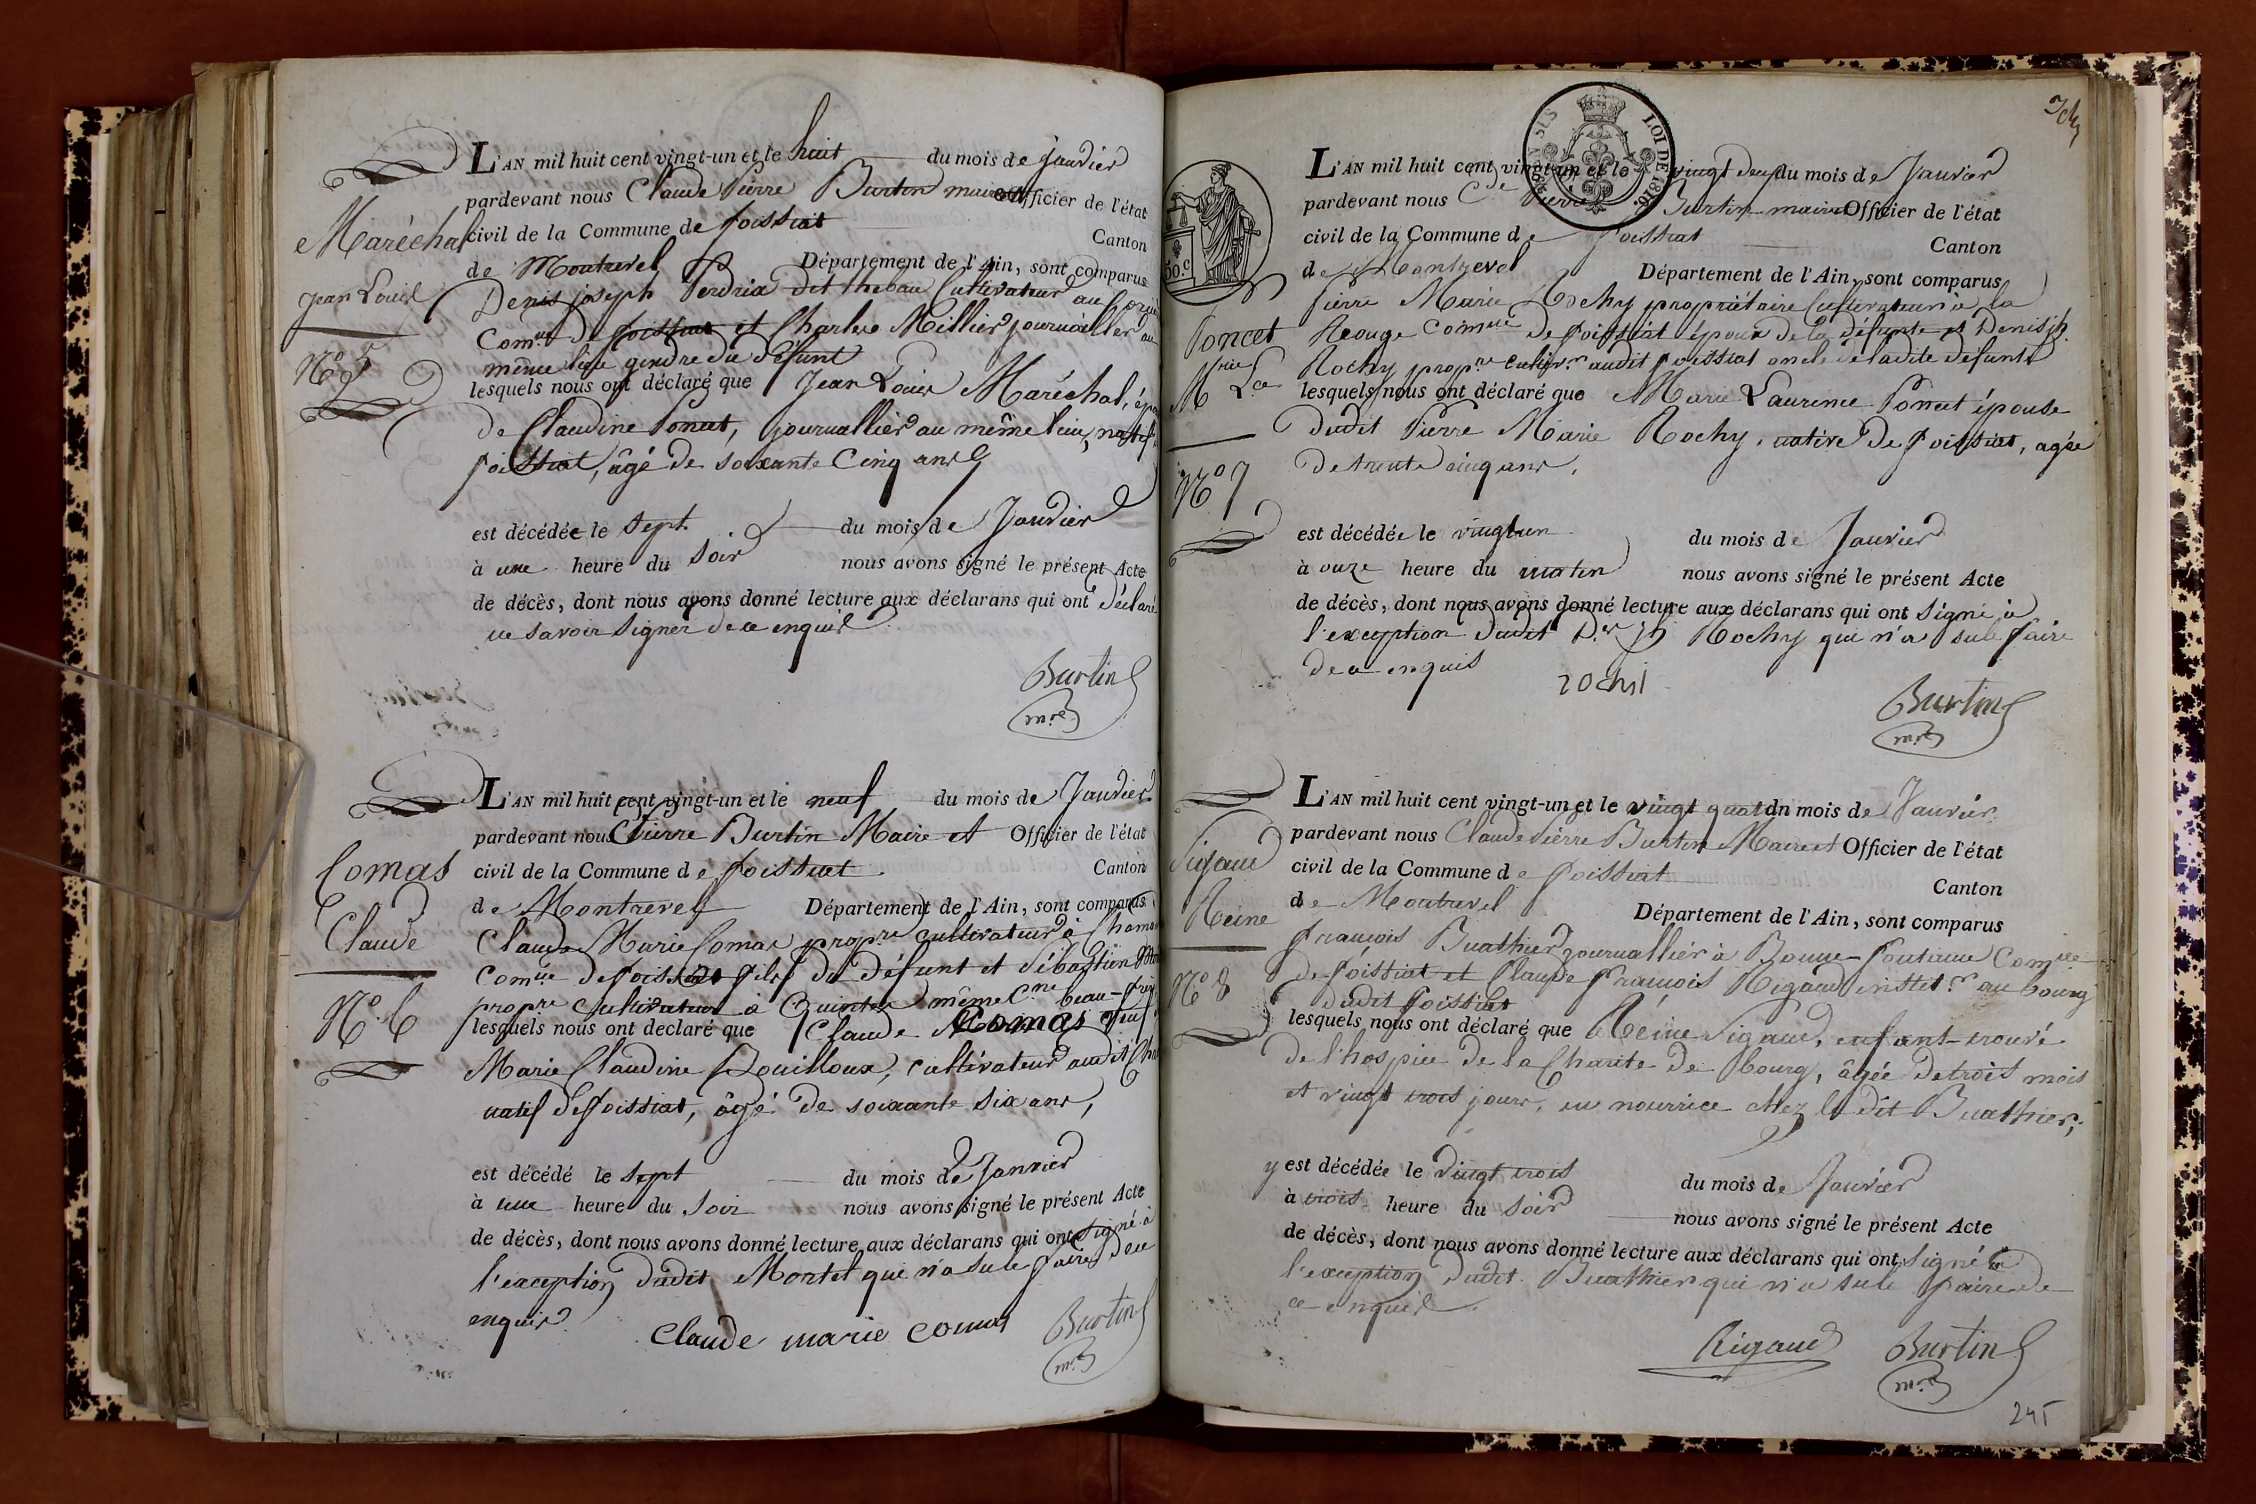 L'AN mil huit cent vingt-un et le huit du mois de Janvier
pardevant nous Claude Pierre Burtin maire et Officier de l'état
civil de la Commune de foissiat Canton
de Montrevel Département de l'Ain, sont comparus
Denis joseph Perdrix dit thebau Cultivateur au
Com.ne de foissiat et Charles Millier journallier au
même lieu gendre du défunt
lesquels nous ont déclaré que Jean Louis Maréchal, époux
de Claudine Poncet, journallier au même lieu, natif
foissiat, âgé de soixante Cinq ans
est décédée le sept du mois de Janvier
à une heure du soir nous avons signé le présent Acte
de décès, dont nous avons donné lecture aux déclarans qui ont déclaré
ne savoir signer de ce enquis
Burtin
m.re
Maréchal
Jean Louis
N.o 5
L'AN mil huit cent vingt-un et le neuf du mois de Janvier
pardevant nous C Pierre Burtin Maire et Officier de l'état
civil de la Commune de foissiat Canton
de Montrevel Département de l'Ain, sont comparus
Claude Marie Comas prop.re cultivateur à
Com.ne de foissiat fils du défunt et Sébastien
prop.re Cultivateur à Quintes même C.ne beau-
lesquels nous ont declaré que Claude Comas veuf
Marie Claudine Rouilloux, cultivateur audit
natif de foissiat, âgé de soixante six ans,
est décédé le sept du mois de Janvier
à une heure du soir nous avons signé le présent Acte
de décès, dont nous avons donné lecture aux déclarans qui ont signé à
l'exception dudit Montel qui n'a sule faire de ce
enquis
claude marie comas Burtin
m.re
Comas
Claude
N.o 6
30.c
LOI DE 1816.
L'AN mil huit cent vingt-un et le vingt deux du mois de Janvier
pardevant nous C.de Pierre Burtin maire et Officier de l'état
civil de la Commune de foissiat Canton
de Montrevel Département de l'Ain, sont comparus
Pierre Marie Rochy propriétaire Cultivateur à la
Rouge Com.ne de foissiat époux de la défunte et Denis j.h
Rochy prop.re cultiv.r audit foissiat oncle de ladite défunte
lesquels nous ont déclaré que Marie Laurence Poncet épouse
dudit Pierre Marie Rochy, native de foissiat, agée
de trente cinq ans,
est décédée le vingt un du mois de Janvier
à onze heure du matin nous avons signé le présent Acte
de décès, dont nous avons donné lecture aux déclarans qui ont signé à
l'exception dudit D.is j.h Rochy qui n'a sule faire
de ce enquis
Burtin
m.re
Poncet
M.rie L.ce
N.o 7
L'AN mil huit cent vingt-un et le vingt quat du mois de Janvier
pardevant nous Claude Pierre Burtin Maire et Officier de l'état
civil de la Commune de foissiat Canton
de Montrevel Département de l'Ain, sont comparus
françois Buathier journallier à Bonne-fontaine Com.ne
de foissiat et Claude françois Rigaud instit.r au bourg
dudit foissiat
lesquels nous ont déclaré que Reine Sigaud, enfant-trouvé
de l'hospice de la Charité de bourg, âgée de trois mois
et vingt trois jours, en nourrice chez le dit Buathier,
y est décédée le vingt trois du mois de Janvier
à trois heure du soir nous avons signé le présent Acte
de décès, dont nous avons donné lecture aux déclarans qui ont signé à
l'exception dudit Buathier qui n'a sule faire de
ce enquis.
Rigaud Burtin
m.re
Sigaud
Reine
N.o 8
245